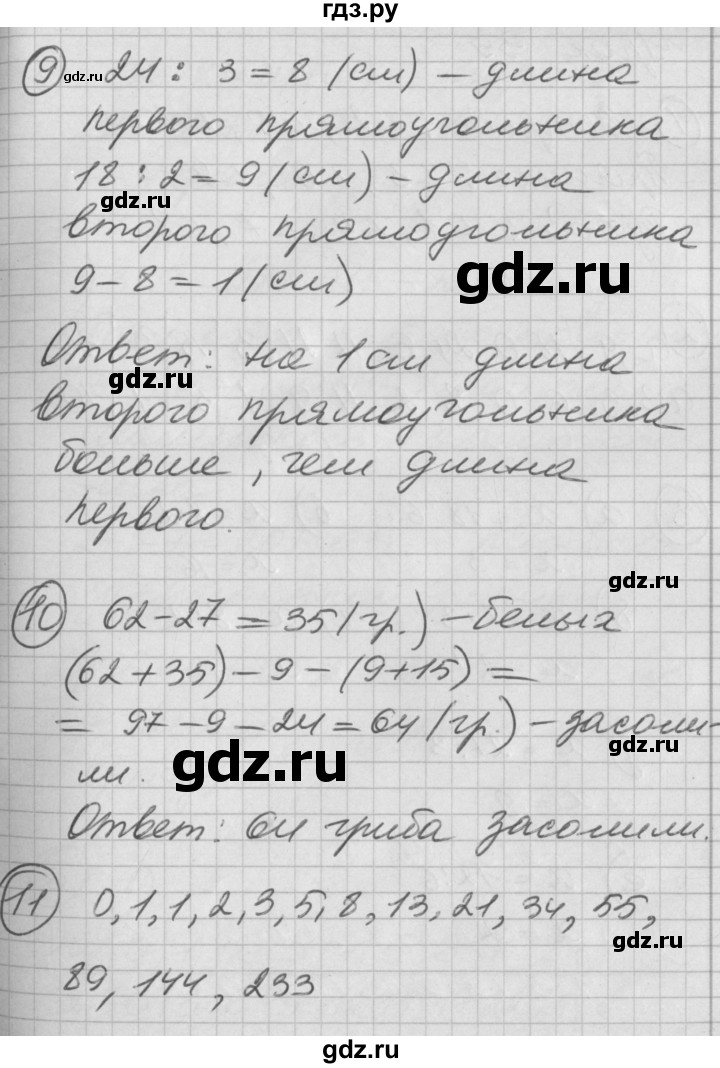 гдз.ру
9 gdz.ru 24 : 3 = 8 (см) – длина
первого прямоугольника
18 : 2 = 9 (см) – длина
gdz.ru
второго прямоугольника
9 – 8 = 1 (см)
gdz.ru
Ответ: на 1 см длина
gdz.ru
второго прямоугольника
больше, чем длина
первого.
gdz.ru
10 62 – 27 = 35 (гр.) – белых
(62 + 35) – 9 – (9 + 15) =
= 97 – 9 – 24 = 64 (гр.) – засоли-
gdz.ru
ли.
gdz.ru
Ответ: 64 гриба засолили.
11 0, 1, 1, 2, 3, 5, 8, 13, 21, 34, 55,
gdz.ru
89, 144, 233
gdz.ru